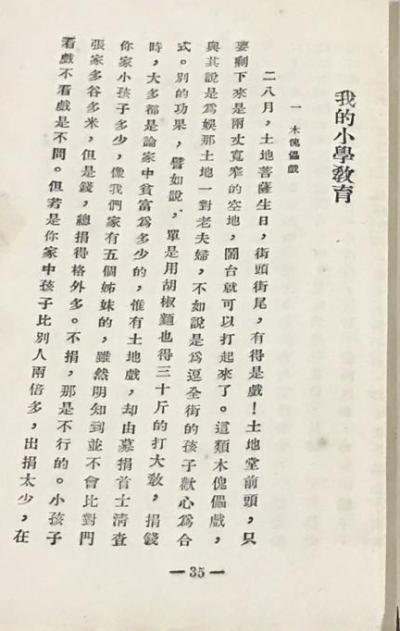 我的小學敎育
一 木傀儡戲
二八月，土地菩薩生日，街頭街尾，有得是戲！土地堂前頭，只
要剩下來是兩丈寬窄的空地，鬧台就可以打起來了。這類木傀儡戲，
與其說是爲娛那土地一對老夫婦，不如說是爲逗全街的孩子歡心爲合
式。別的功果，譬如說，單是用胡椒麵也得三十斤的打大敎，捐錢
時，大多都是論家中貧富爲多少的，惟有土地戲，却由募捐首士清查
你家小孩子多少，像我們家有五個姊妹的，雖然明知到並不會比對門
張家多谷多米，但是錢，總捐得格外多。不捐，那是不行的。小孩子
看戲不看戲是不問。但若是你家中孩子比別人兩倍多，出捐太少，在
— 35 —